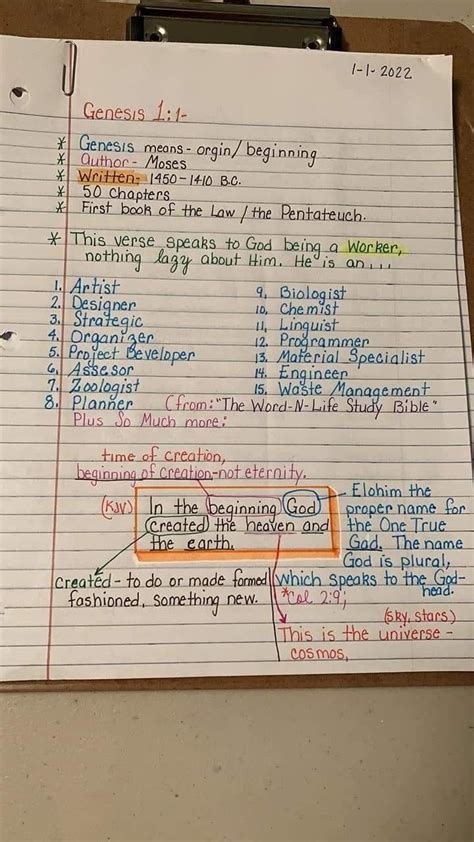 1-1-2022
Genesis 1:1-
* Genesis means - orgin/beginning
* Author - Moses
* Written - 1450-1410 B.C.
* 50 Chapters
* First book of the Law / the Pentateuch.
* This verse speaks to God being a Worker,
nothing lazy about Him. He is an...
1. Artist
2. Designer
3. Strategic
4. Organizer
5. Project Developer
6. Assesor
7. Zoologist
8. Planner
9. Biologist
10. Chemist
11. Linguist
12. Programmer
13. Material Specialist
14. Engineer
15. Waste Management
(from: "The Word-N-Life Study Bible"
Plus So Much more:
time of creation,
beginning of creation-not eternity.
(KJV) In the beginning God
created the heaven and
the earth.
Elohim the
proper name for
the One True
God. The name
God is plural,
which speaks to the God-
head.
*Col 2:9;
created - to do or made formed
fashioned, something new.
(sky, stars)
This is the universe -
cosmos,